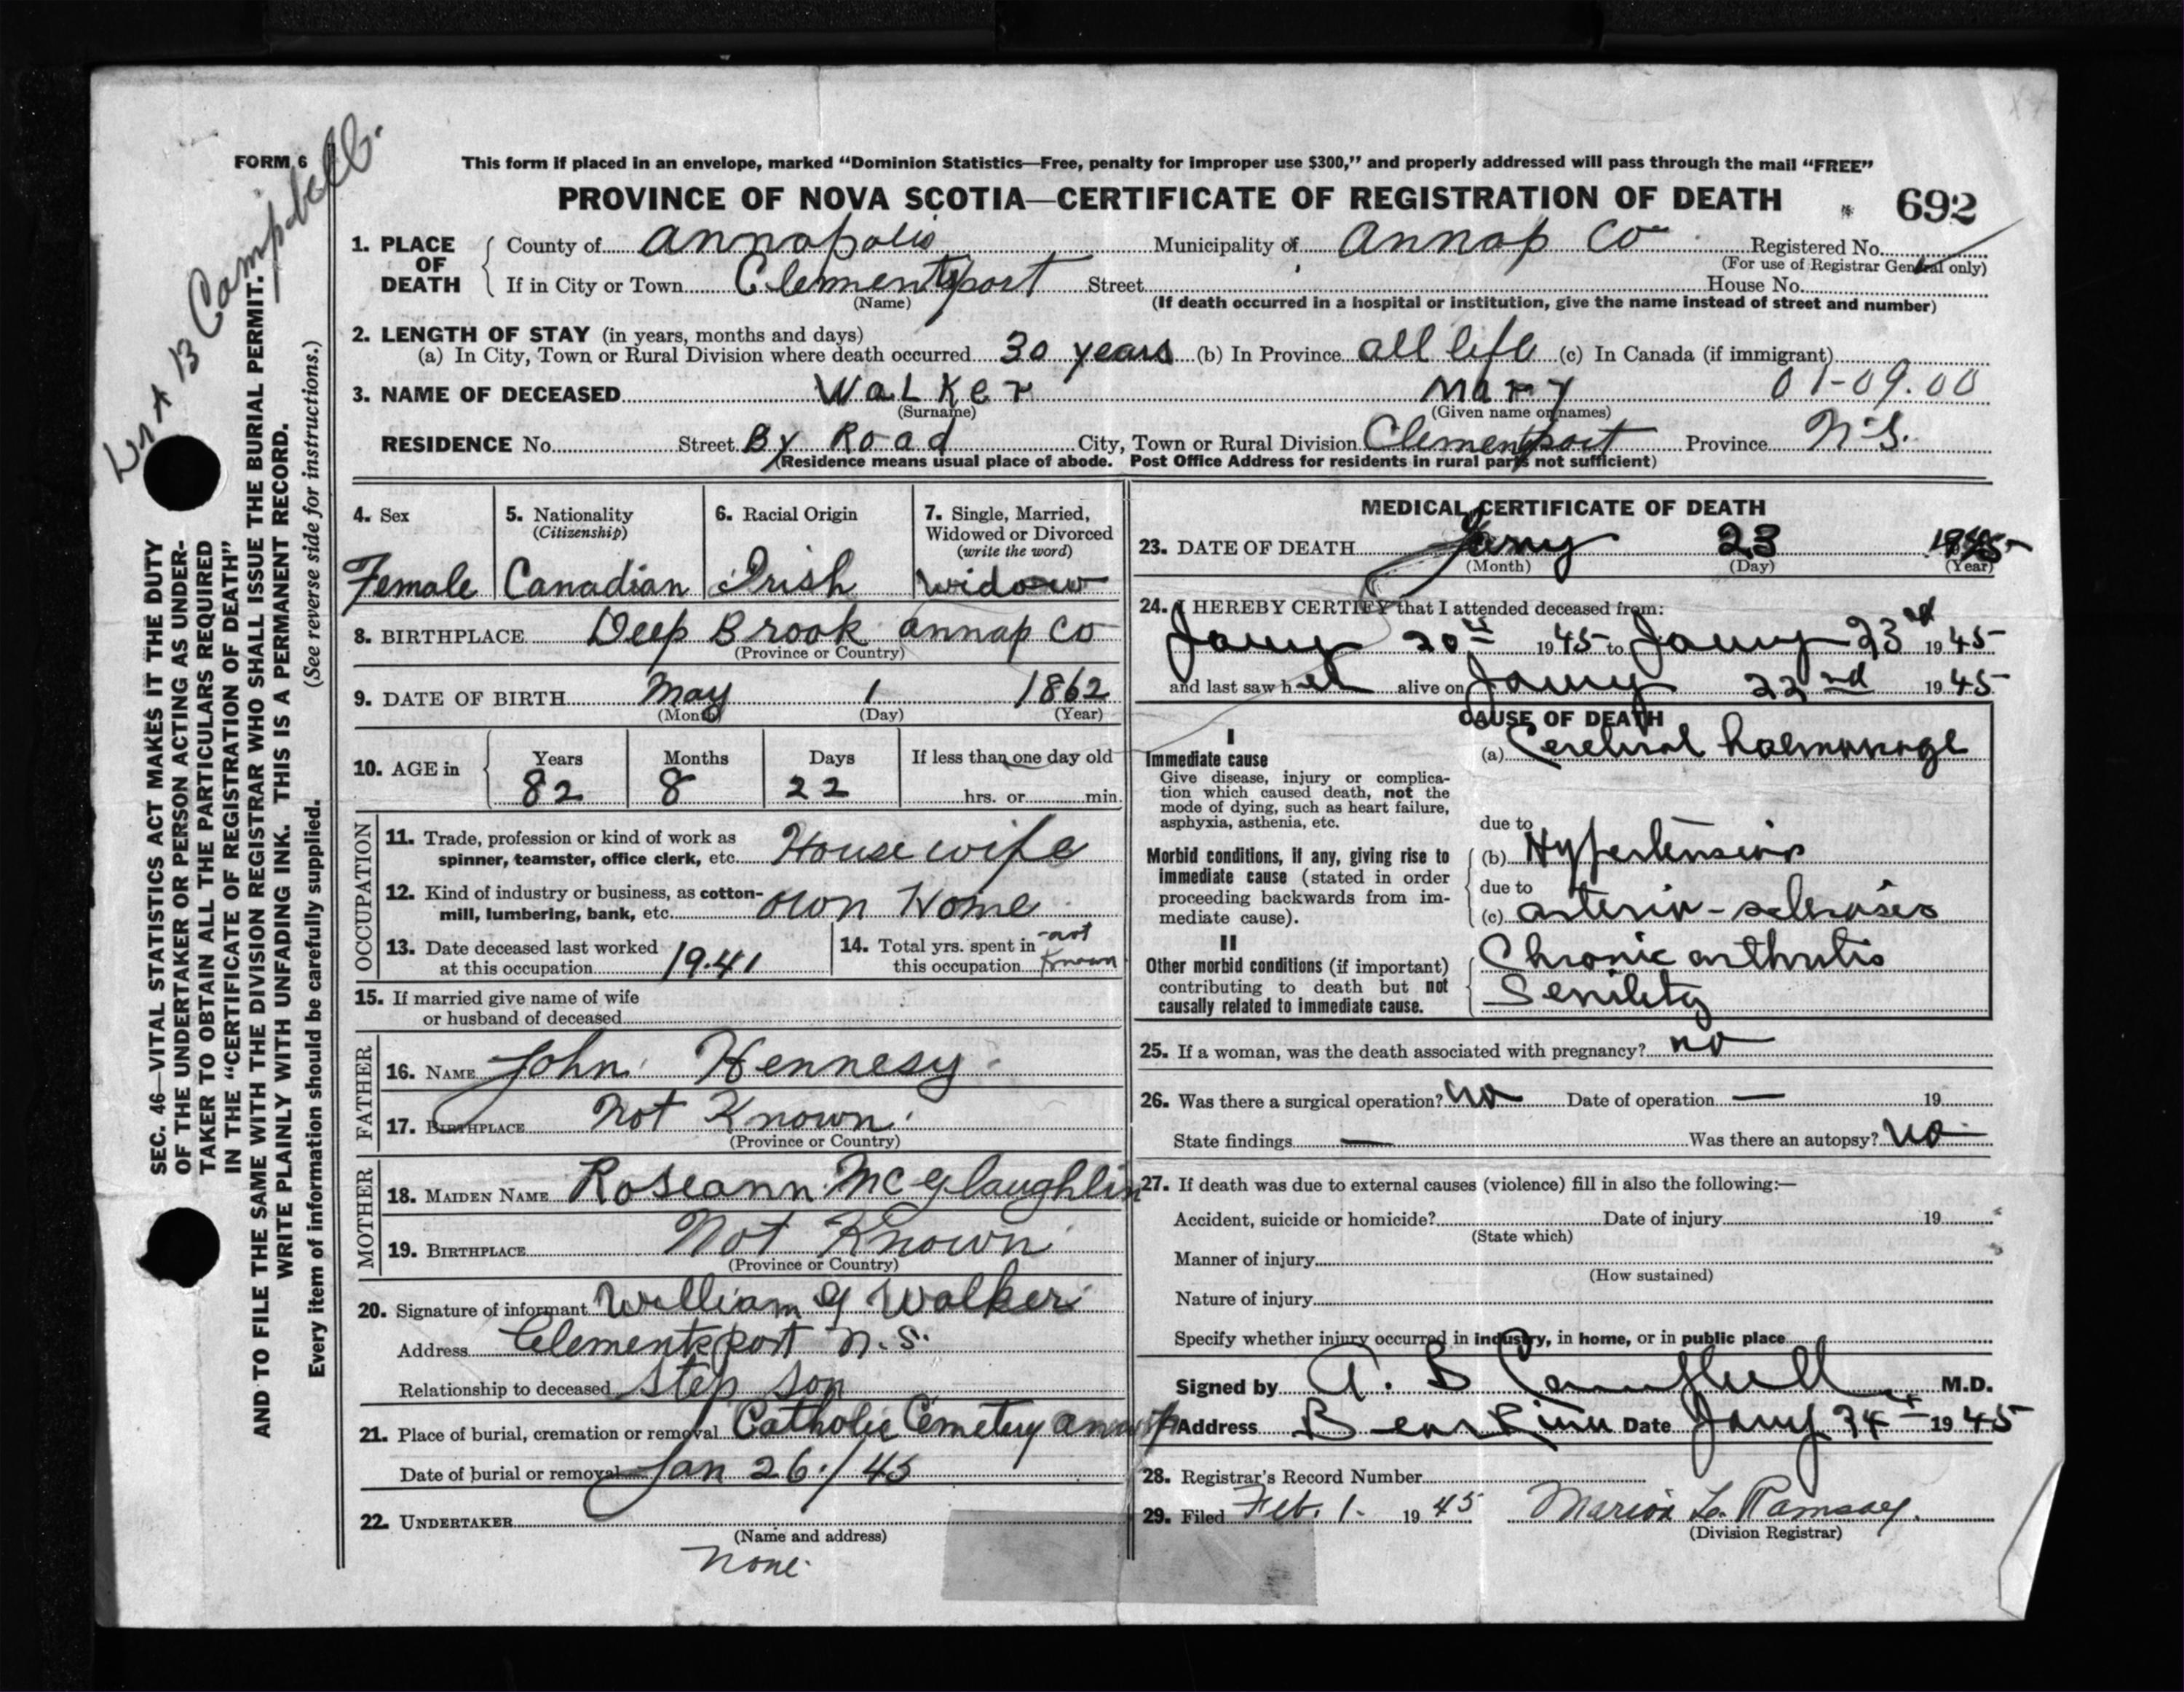 FORM 6
This form if placed in an envelope, marked “Dominion Statistics—Free, penalty for improper use $300,” and properly addressed will pass through the mail “FREE”
PROVINCE OF NOVA SCOTIA—CERTIFICATE OF REGISTRATION OF DEATH
692
1. PLACE OF DEATH
County of Annapolis Municipality of Annap Co Registered No.
(For use of Registrar General only)
If in City or Town Clementsport Street House No.
(Name) (If death occurred in a hospital or institution, give the name instead of street and number)
2. LENGTH OF STAY (in years, months and days)
(a) In City, Town or Rural Division where death occurred 30 years (b) In Province all life (c) In Canada (if immigrant)
3. NAME OF DECEASED Walker Mary 01-09.00
(Surname) (Given name or names)
RESIDENCE No. Street By Road City, Town or Rural Division Clementsport Province N.S.
(Residence means usual place of abode. Post Office Address for residents in rural parts not sufficient)
4. Sex
Female
5. Nationality
(Citizenship)
Canadian
6. Racial Origin
Irish
7. Single, Married,
Widowed or Divorced
(write the word)
Widow
8. BIRTHPLACE Deep Brook Annap Co
(Province or Country)
9. DATE OF BIRTH May 1 1862
(Month) (Day) (Year)
10. AGE in
Years Months Days If less than one day old
82 8 22 hrs. or min.
OCCUPATION
11. Trade, profession or kind of work as
spinner, teamster, office clerk, etc. House wife
12. Kind of industry or business, as cotton-
mill, lumbering, bank, etc. own Home
13. Date deceased last worked
at this occupation 1941
14. Total yrs. spent in not
this occupation Known
15. If married give name of wife
or husband of deceased
FATHER
16. NAME John Hennesy
17. BIRTHPLACE Not Known
(Province or Country)
MOTHER
18. MAIDEN NAME Roseann McGlaughlin
19. BIRTHPLACE Not Known
(Province or Country)
20. Signature of informant William G Walker
Address Clementsport N.S.
Relationship to deceased Step son
21. Place of burial, cremation or removal Catholic Cemetery
Date of burial or removal Jan 26/45
22. UNDERTAKER
(Name and address)
None
MEDICAL CERTIFICATE OF DEATH
23. DATE OF DEATH Jany 23 1945
(Month) (Day) (Year)
24. I HEREBY CERTIFY that I attended deceased from:
Jany 20th 1945 to Jany 23rd 1945
and last saw her alive on Jany 22nd 1945
CAUSE OF DEATH
I
Immediate cause
Give disease, injury or complica-
tion which caused death, not the
mode of dying, such as heart failure,
asphyxia, asthenia, etc.
(a) Cerebral haemorrage
due to
Morbid conditions, if any, giving rise to
immediate cause (stated in order
proceeding backwards from im-
mediate cause).
(b) Hypertension
due to
(c) arterio-sclerosis
II
Other morbid conditions (if important)
contributing to death but not
causally related to immediate cause.
Chronic arthritis
Senility
25. If a woman, was the death associated with pregnancy? no
26. Was there a surgical operation? no Date of operation — 19
State findings — Was there an autopsy? no
27. If death was due to external causes (violence) fill in also the following:—
Accident, suicide or homicide? Date of injury 19
(State which)
Manner of injury
(How sustained)
Nature of injury
Specify whether injury occurred in industry, in home, or in public place
Signed by A. B Campbell M.D.
Address Bear River Date Jany 24th 1945
28. Registrar's Record Number
29. Filed Feb. 1. 1945 Marion L. Ramsay.
(Division Registrar)
SEC. 46—VITAL STATISTICS ACT MAKES IT THE DUTY
OF THE UNDERTAKER OR PERSON ACTING AS UNDER-
TAKER TO OBTAIN ALL THE PARTICULARS REQUIRED
IN THE “CERTIFICATE OF REGISTRATION OF DEATH”
AND TO FILE THE SAME WITH THE DIVISION REGISTRAR WHO SHALL ISSUE THE BURIAL PERMIT.
WRITE PLAINLY WITH UNFADING INK. THIS IS A PERMANENT RECORD.
Every item of information should be carefully supplied. (See reverse side for instructions.)
Campbell.